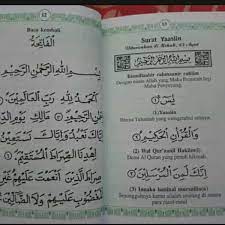 Baca kembali
اَلْفَاتِحَةُ
بِسْمِ اللهِ الرَّحْمٰنِ الرَّحِيْمِ
اَلْحَمْدُ لِلّٰهِ رَبِّ الْعَالَمِيْنَ
الرَّحْمٰنِ الرَّحِيْمِ
اِهْدِنَا الصِّرَاطَ الْمُسْتَقِيْمَ
صِرَاطَ الَّذِيْنَ اَنْعَمْتَ عَلَيْهِمْ
الْمَغْضُوْبِ عَلَيْهِمْ وَلَا
Surat Yaasiin
(Diturunkan di Mekah, 83 : Ayat)
Bismillaahir rahmaanir rahiim
Dengan nama Allah yang Maha Pemurah lagi
Maha Penyayang.
يٰسۤ
(1) Yaasiin
Hanya Tuhanlah yang mengetahui artinya.
وَالْقُرْاٰنِ الْحَكِيْمِ
(2) Wal Qur'aanil Hakiim(i)
Demi Al Quran yang penuh hikmah.
اِنَّكَ لَمِنَ الْمُرْسَلِيْنَ
(3) Innaka laminal mursaliin(a)
Sesungguhnya kamu adalah seorang di antara
para rasul-rasul